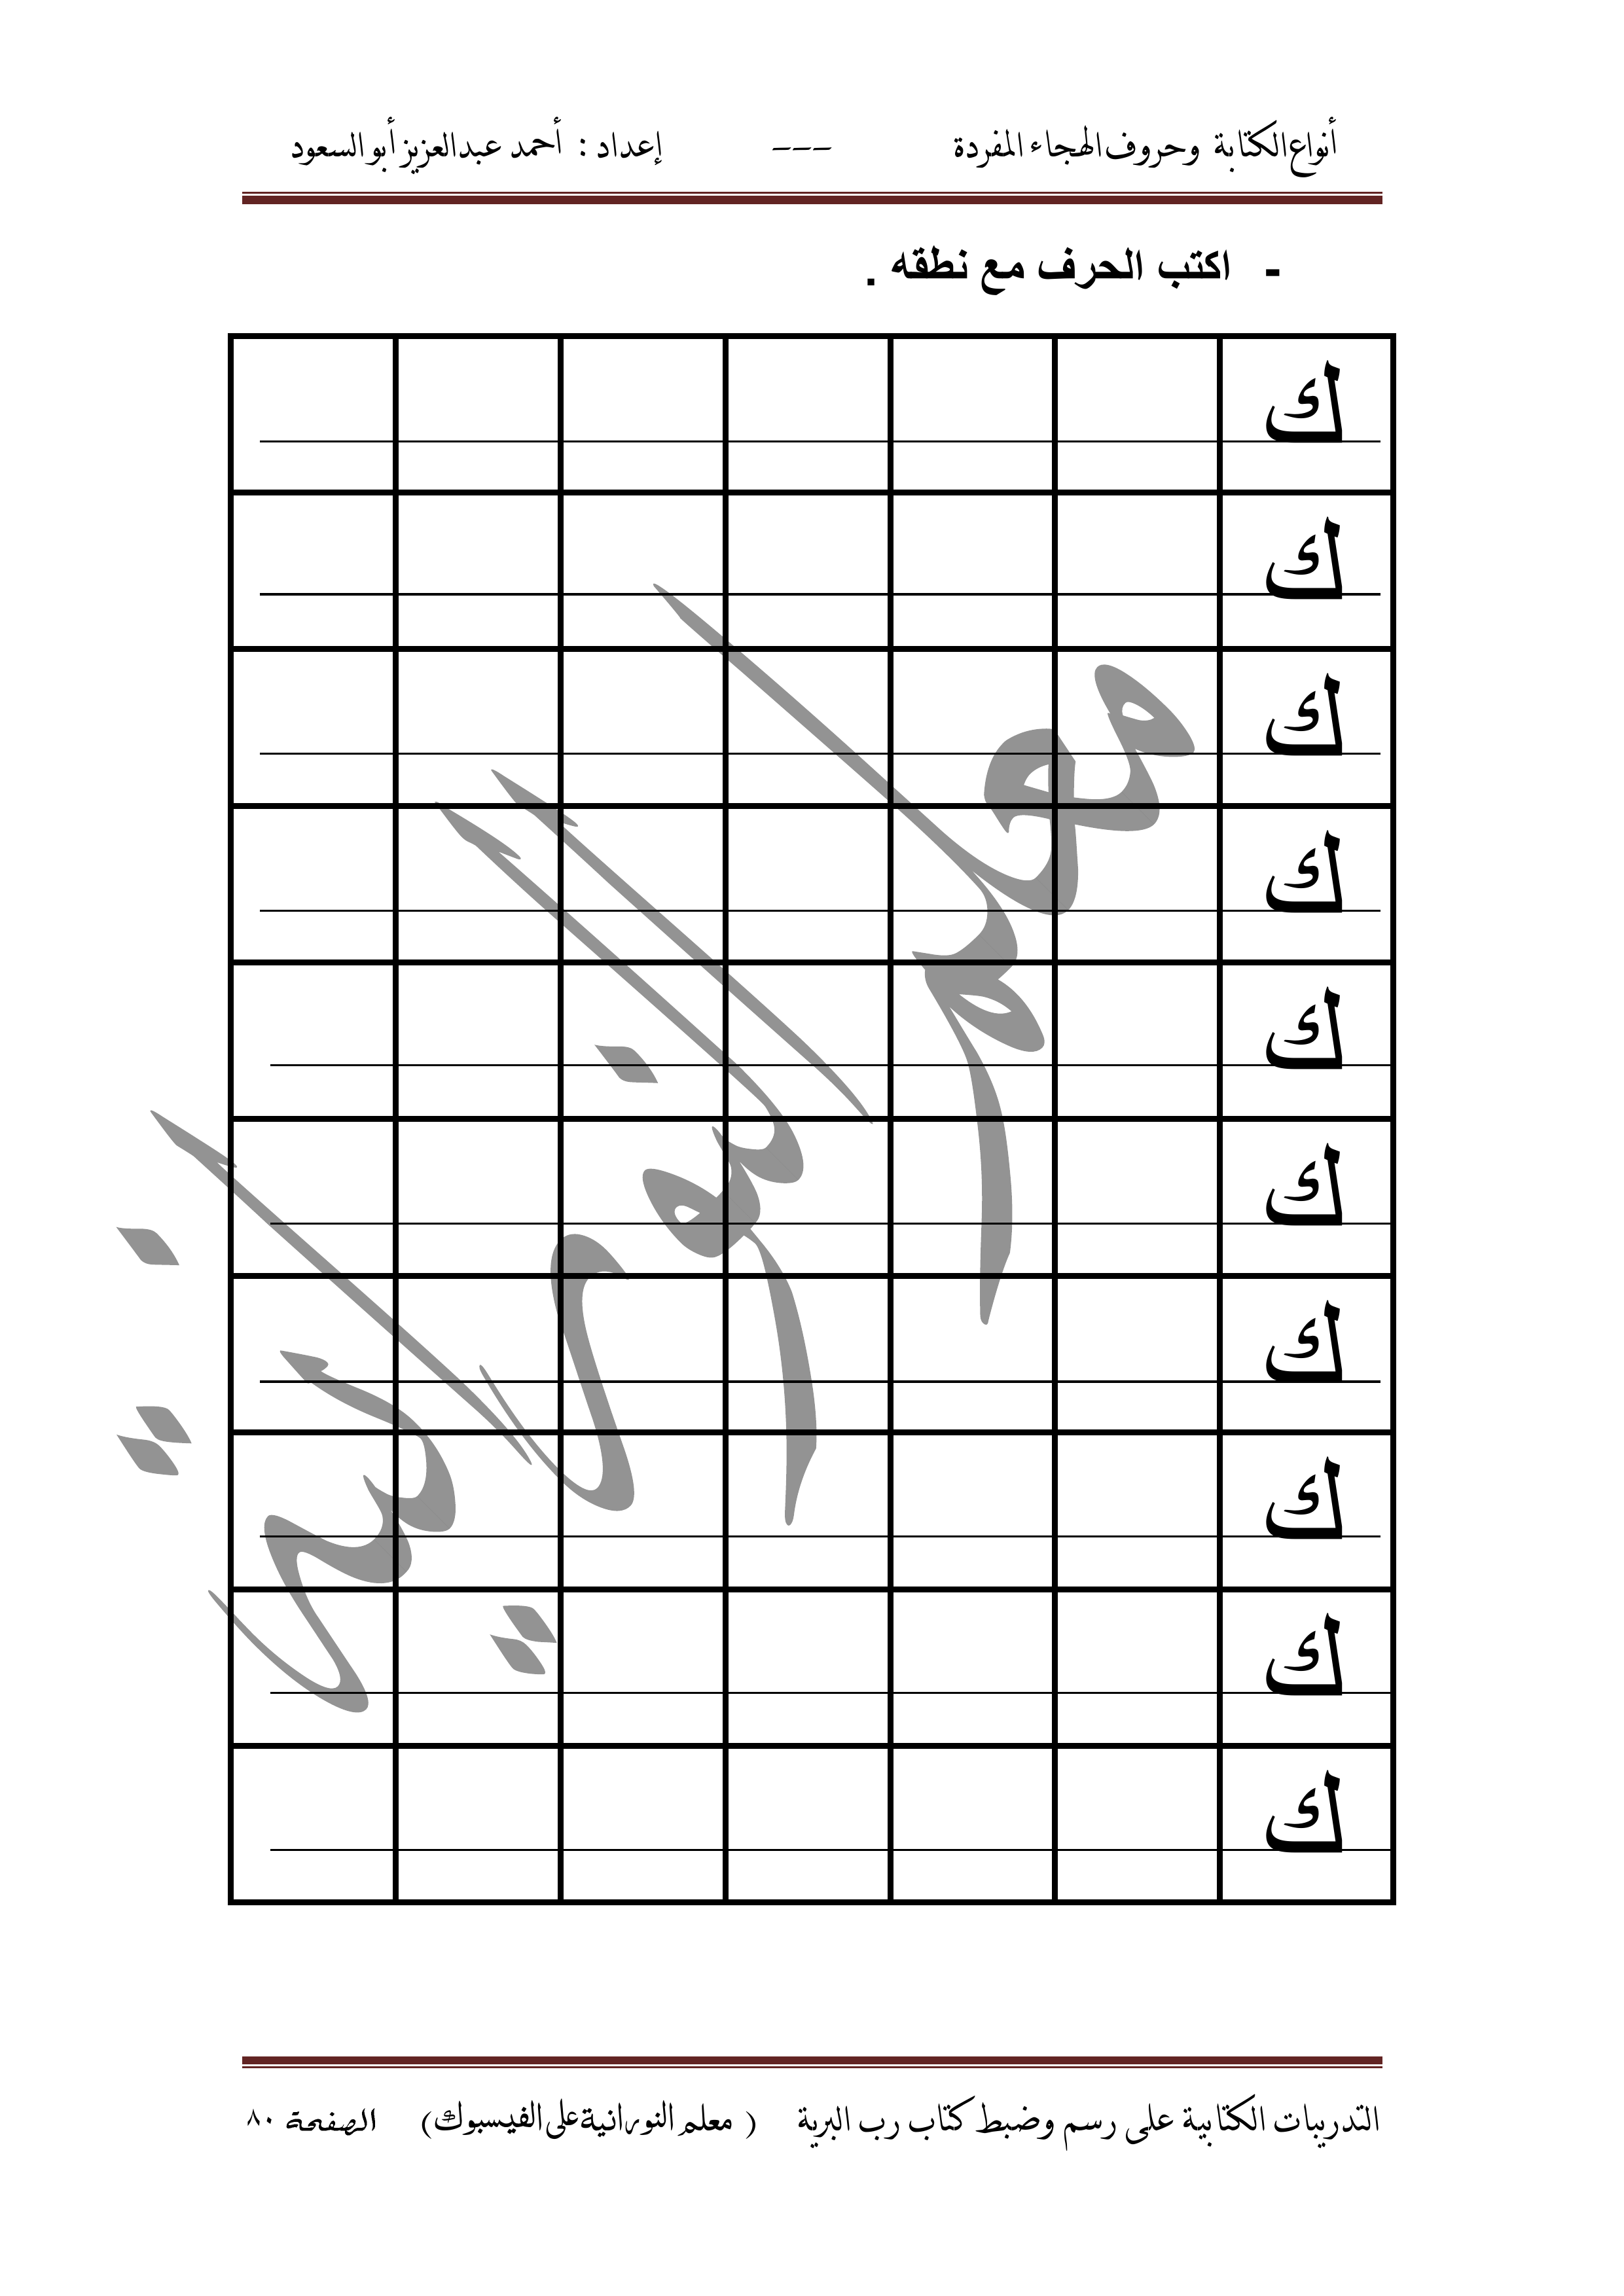 أنواع الكتابة وحروف الهجاء المفردة --- إعداد : أحمد عبدالعزيز أبو السعود
- اكتب الحرف مع نطقه .
ك
ك
ك
ك
ك
ك
ك
ك
ك
ك
معلم النورانية
التدريبات الكتابية على رسم وضبط كتاب رب البرية ( معلم النورانية على الفيسبوك) الصفحة ٨٠